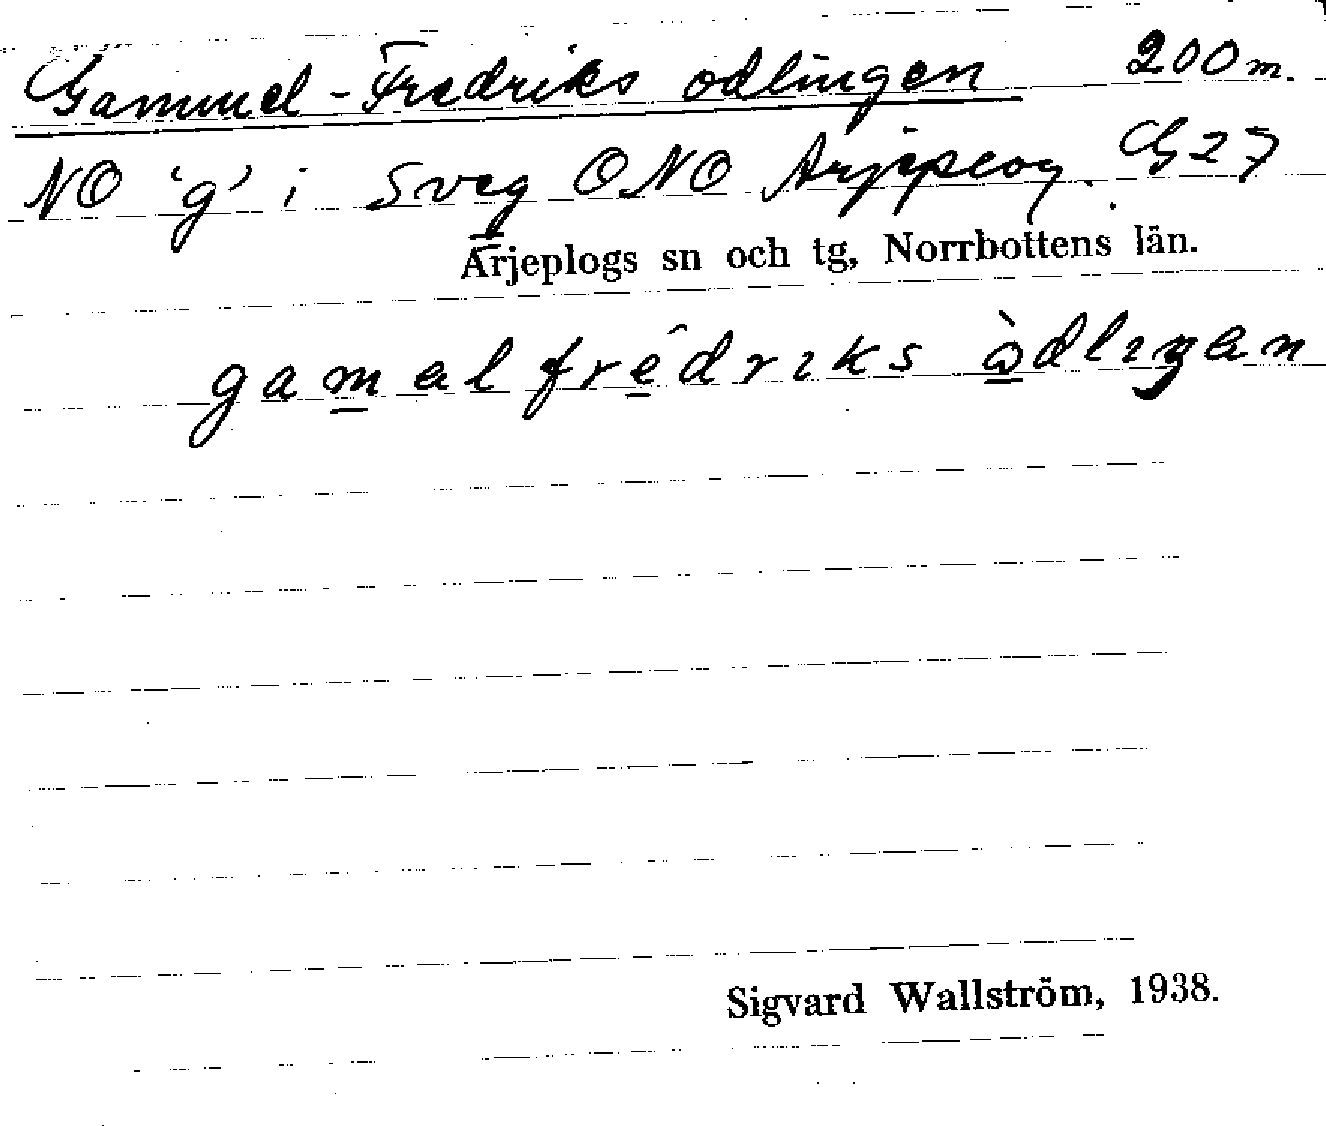 Gammel-Fredriks odlingen 200 m.
NO 'g' i Sveg ONO Arjeplog. G27
Arjeplogs sn och tg, Norrbottens län.
gam̲əl frê̲driks ò̲dlıŋən
Sigvard Wallström, 1938.